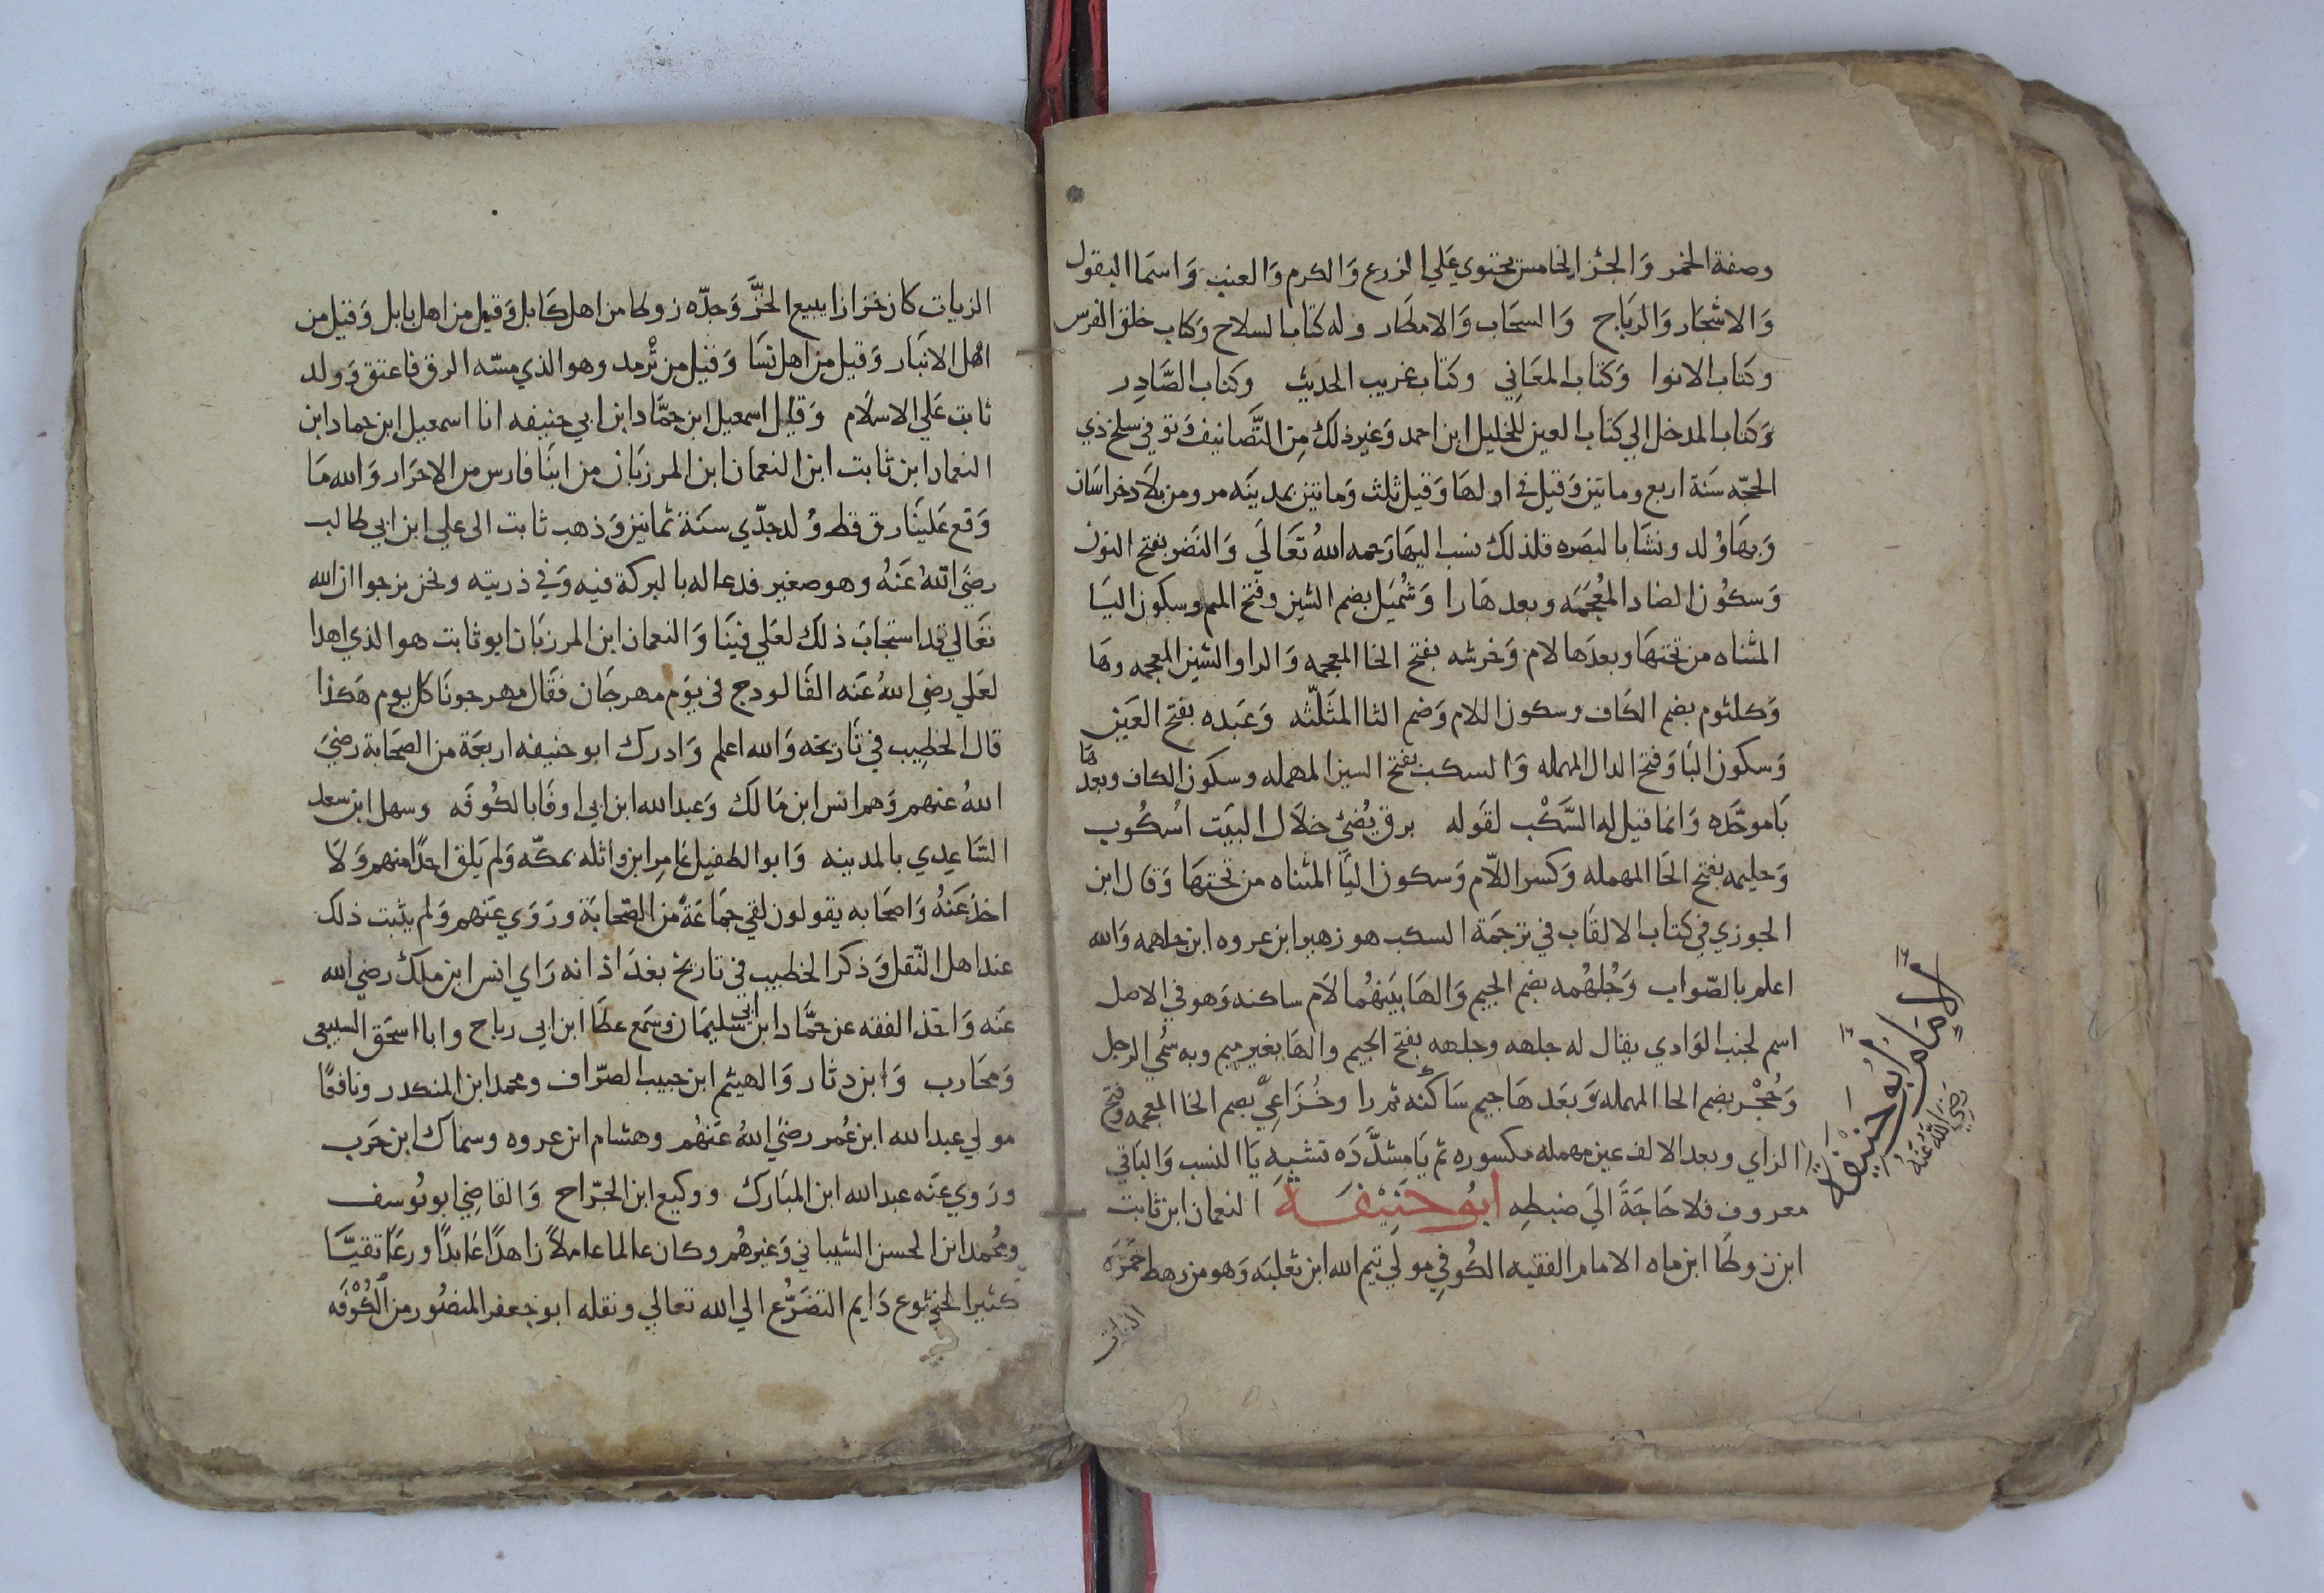 وصفة الخمر وَالجُزا الخامس يحتوي عَلي الزرع وَالكرم وَالعنب وَاسمَا البقول
وَالاشجَار وَالريَاح وَالسحَاب وَالامطَار وله كتاب السلاح وكتاب خلق الفرس
وكتاب الانوا وَكتاب المعَاني وكتاب غريب الحديث وكتاب الصَّادِر
وَكتاب المدخل الي كتاب العين للخليل ابن احمد وَغير ذلك مِن التَّصَانيف وَتوفي سلخ ذي
الحجّه سَنة اربع وماتين وَقيل في اولهَا وَقيل ثلث وَماتين بمدينَه مرو من بلاد خراسَان
وَبهَا وُلد ونشَا بالبصَره فلذلك نسب اليهَا رَحمه اللهُ تَعَالَي وَالنَضر بفتح النون
وَسكُون الضاد المُعجمَه وبعدهَا را وَشُمَيل بضم الشين وفتح الميم وسكون اليَا
المثناه من تحتهَا وبعدَها لام وَخرشه بفتح الخا المعجمه وَالرا والشين المعجمه وهَا
وَكلثوم بضم الكاف وسكون اللام وَضم الثا المثَلّثه وَعَبده بفتح العَين
وَسكون البَا وَفتح الدال المهمله وَالسكب بفتح السين المهمله وسكون الكاف وبعدهَا
بَا موحَّده وَانما قيل له السَّكْب لقَوله برق يُضئ خلَال البيَت اسُكُوب
وَحليمه بفتح الحَا المهمله وَكسر اللّام وَسكون اليَا المثناه من تحتهَا وَقال ابن
الجوزي في كتاب الالقَاب في ترجمَة السكب هو زهير ابن عروه ابن جلهمه وَالله
اعلم بالصّواب وَجُلهُمه بضم الجيم وَالهَا بَينَهُما لَام ساكنه وَهو في الاصل
اسم لجنب الوَادي يقال له جلهه وجلهه بفتح الجيم والهَا بغير ميم وبه سُمي الرجل
وَحُجْر بضم الحا المهمله وَبعَدهَا جيم سَاكنه ثم را وخُزَاعِيّ بضم الخا المعجمه وفتح
الزاي وبعد الالف عين مهمله مكسوره ثم يَا مشدَّدَه تشبه يَا النسب وَالبَاقي
معروف فلا حَاجَةَ الَي ضبطِه ابُو حَنِيْفَة النعمان ابن ثابت
ابن زوطَا ابن ماه الامام الفقيه الكُوفي مولي تيم الله ابن ثعلبَه وَهو من رهط حمَزَه
الامَام ابو حنيفة
رَضي اللّه عَنهُ
الزيات
الزيات كان خزازا يبيع الخَزَّ وَجدّه زوطا من اهل كَابل وَقيل من اهل بابل وَقيل من
اهل الانبَار وَقيل من اهل نسَا وَقيل من تْرمد وهو الذي مسّه الرق فاعتق وَولد
ثابت عَلي الاسلَام وَقَال اسمعيل ابن حمَّاد ابن ابي حنيفه انا اسمعيل ابن حماد ابن
النعمان ابن ثابت ابن النعمان ابن المرزبَان من ابنَا فارس من الاحرَار وَالله مَا
وَقع عَلينَا رق قط وُلد جدّي سنَة ثمانين وَذهب ثابت الى علي ابن ابي طالب
رضيَ اللهُ عَنْهُ وهو صغير فدعا له بالبركة فيه وَفي ذريته ونحن نرجوا ان الله
تعَالي قد استجابَ ذلَك لعَلي فينَا وَالنعمان ابن المرزبَان ابو ثابت هو الذي اهدا
لعَلي رضي اللهُ عَنه الفَالودج في يوَم مهرجَان فقَال مهرجونَا كل يوم هَكذا
قال الخطِيب في تَاريخه وَالله اعلم وَادرك ابو حنيفه اربعَة من الصحَابة رضيَ
اللهُ عنهم وَهم انس ابن مَالك وَعبد الله ابن ابي اوفَا بالكُوفَه وسهل ابن سعد
السَّاعِدي بالمدينه وَابو الطفيل عَامِر ابن واثله بمكّه وَلم يَلق احدًا منهم وَلَا
اخذ عَنهُ وَاصحَابه يقولون لقي جمَاعَةً من الصّحَابَة وروَي عَنهم وَلم يثبت ذلك
عند اهل النّقل وَذكر الخطيب في تاريخ بغدَاذ انه رَاي انس ابن ملك رضي الله
عَنه وَاخذ الفقه عن حمَّاد ابن ابي سليمَان وسَمع عطَا ابن ابي رباح وابا اسحَق السبيعي
وَمحَارب وَابن دثار وَالهيثم ابن حبيب الصرّاف ومحمد ابن المنكدر ونافعًا
مولي عبد الله ابن عُمر رضيَ اللهُ عَنهُم وهشام ابن عروه وسماك ابن حَرب
وروَي عنَه عبد الله ابن المبَارك ووكيع ابن الجرّاح وَالقاضي ابو يُوسف
ومُحمد ابن الحسن الشيباني وَغيرهُم وكان عالما عاملاً زاهدًا عَابدًا ورعَا تقيَّا
كثير الخشوع دَايم التضَرُّع الي الله تعالي ونقله ابو جعفر المنصُور من الكُوْفَه